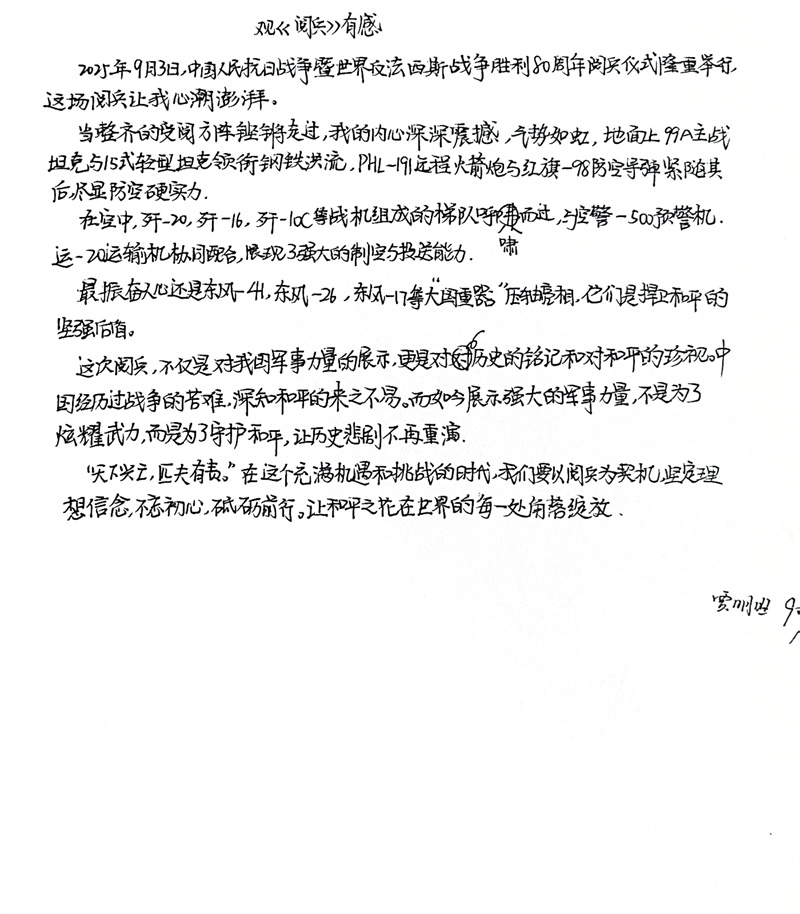 观《阅兵》有感
2025年9月3日,中国人民抗日战争暨世界反法西斯战争胜利80周年阅兵仪式隆重举行,
这场阅兵让我心潮澎湃。
当整齐的受阅方阵铿锵走过,我的内心深深震撼,气势如虹,地面上99A主战
坦克与15式轻型坦克领衔钢铁洪流,PHL-191远程火箭炮与红旗-9B防空导弹紧随其
后,尽显防空硬实力.
在空中,歼-20,歼-16,歼-10C等战机组成的梯队呼啸而过,与空警-500预警机.
运-20运输机协同配合,展现了强大的制空与投送能力.
最振奋人心还是东风-41,东风-26,东风-17等大“国重器”压轴亮相,它们是捍卫和平的
坚强后盾。
这次阅兵,不仅是对我国军事力量的展示,更是对历史的铭记和对和平的珍视。中
国经历过战争的苦难,深知和平的来之不易。而如今展示强大的军事力量,不是为了
炫耀武力,而是为了守护和平,让历史悲剧不再重演.
“天下兴亡,匹夫有责。”在这个充满机遇和挑战的时代,我们要以阅兵为契机,坚定理
想信念,不忘初心,砥砺前行。让和平之花在世界的每一处角落绽放.
贾明